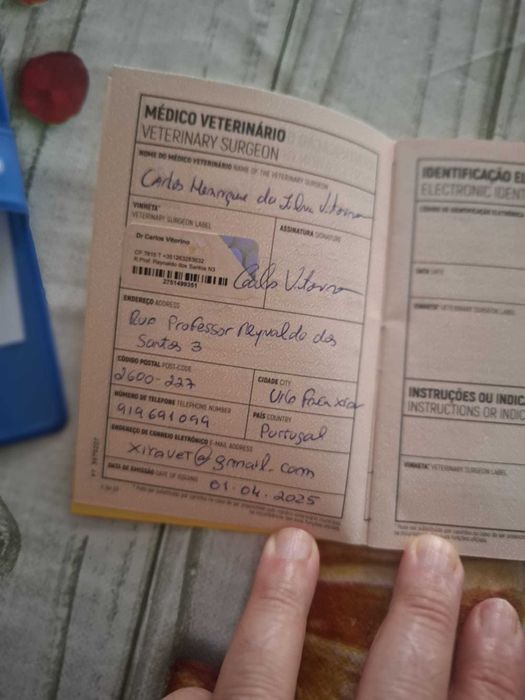 MÉDICO VETERINÁRIO
VETERINARY SURGEON
NOME DO MÉDICO VETERINÁRIO NAME OF THE VETERINARY SURGEON
Carlos Henrique da Silva Vitorino
VINHETA* VETERINARY SURGEON LABEL
Dr Carlos Vitorino
CP 7915 T +351263283632
R.Prof. Reynaldo dos Santos N3
2751499351
ASSINATURA SIGNATURE
Carlos Vitorino
ENDEREÇO ADDRESS
Rua Professor Reynaldo dos
Santos 3
CÓDIGO POSTAL POST-CODE
2600-227
CIDADE CITY
Vila Franca Xira
NÚMERO DE TELEFONE TELEPHONE NUMBER
919691099
PAÍS COUNTRY
Portugal
ENDEREÇO DE CORREIO ELETRÓNICO E-MAIL ADDRESS
xiravet@gmail.com
DATA DE EMISSÃO DATE OF ISSUING
01.04.2025
IDENTIFICAÇÃO
ELECTRONIC
DATA DATE
VINHETA* VETERINARY SURGEON LABEL
INSTRUÇÕES OU
INSTRUCTIONS OR
VINHETA* VETERINARY SURGEON LABEL